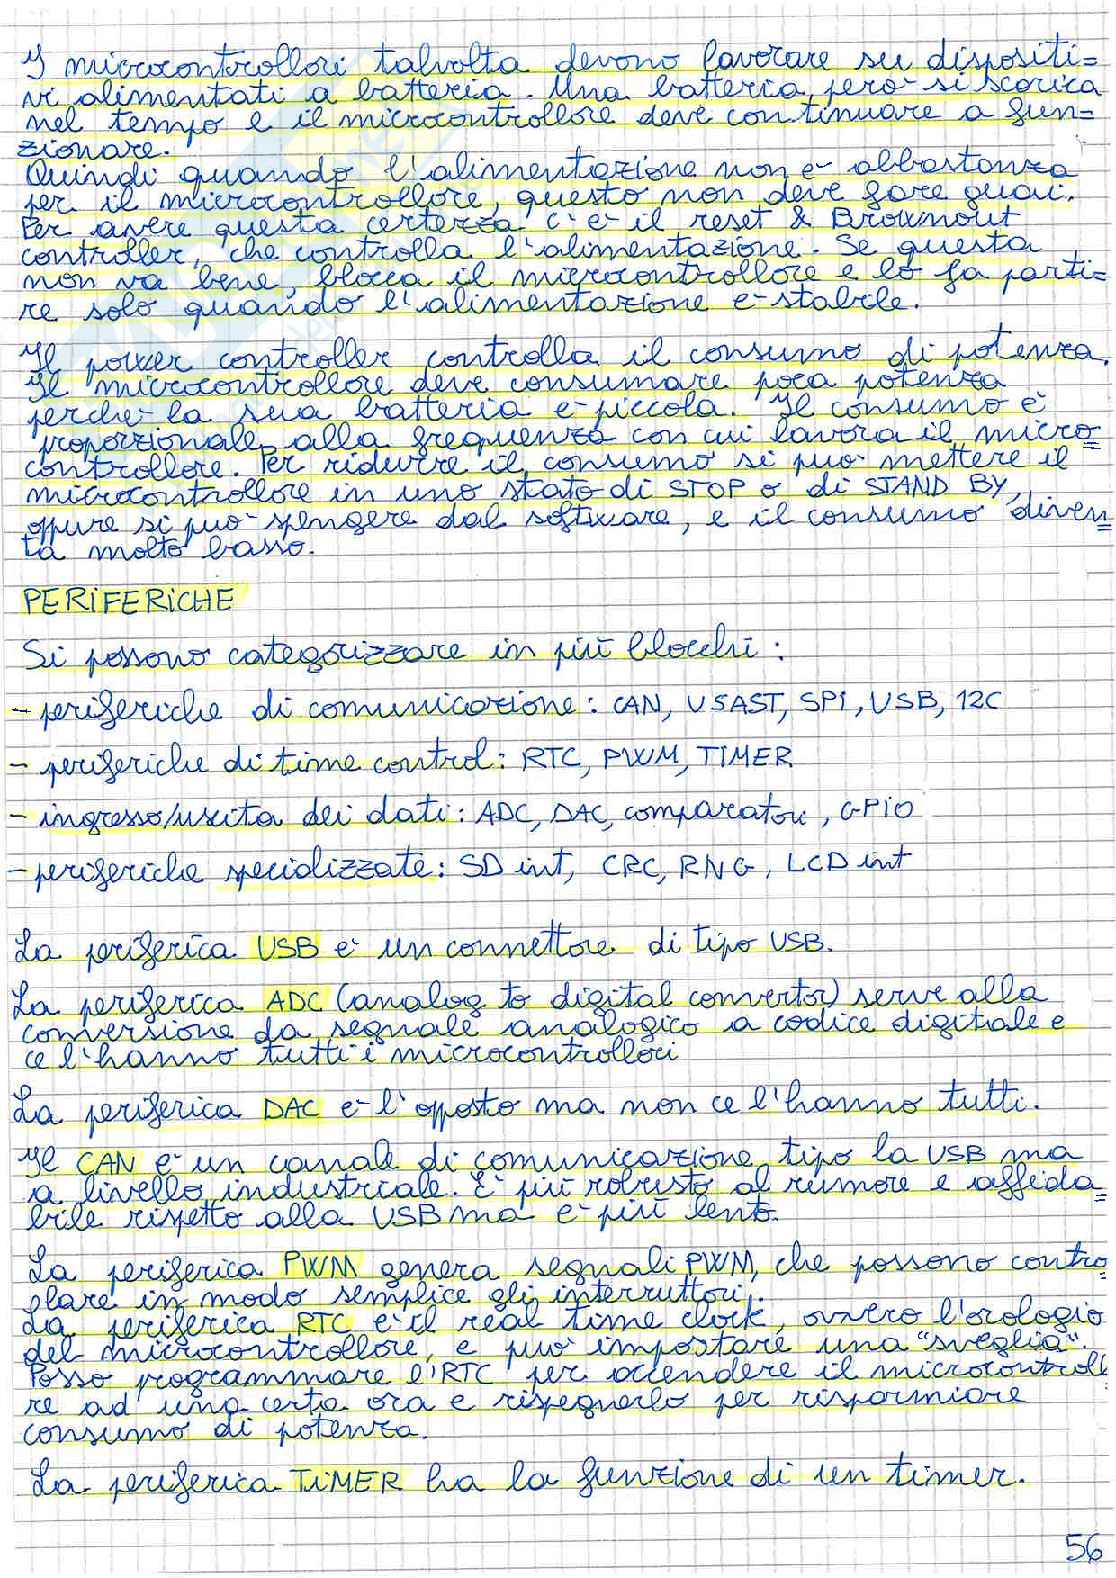 I microcontrollori talvolta devono lavorare su dispositi=
vi alimentati a batteria. Una batteria però si scarica
nel tempo e il microcontrollore deve continuare a fun=
zionare.
Quindi quando l'alimentazione non è abbastanza
per il microcontrollore, questo non deve fare guai.
Per avere questa certezza c'è il reset & Brownout
controller, che controlla l'alimentazione. Se questa
non va bene, blocca il microcontrollore e lo fa parti=
re solo quando l'alimentazione è stabile.
Il power controller controlla il consumo di potenza.
Il microcontrollore deve consumare poca potenza
perchè la sua batteria è piccola. Il consumo è
proporzionale alla frequenza con cui lavora il micro=
controllore. Per ridurre il consumo si può mettere il
microcontrollore in uno stato di STOP o di STAND BY,
oppure si può spengere dal software, e il consumo diven=
ta molto basso.
PERIFERICHE
Si possono categorizzare in più blocchi:
- periferiche di comunicazione: CAN, USAST, SPI, USB, I2C
- periferiche di time control: RTC, PWM, TIMER
- ingresso/uscita dei dati: ADC, DAC, comparatori, GPIO
- periferiche specializzate: SD int, CRC, RNG, LCD int
La periferica USB è un connettore di tipo USB.
La periferica ADC (analog to digital convertor) serve alla
conversione da segnale analogico a codice digitiale e
ce l'hanno tutti i microcontrollori
La periferica DAC è l'opposto ma non ce l'hanno tutti.
Il CAN è un canale di comunicazione tipo la USB ma
a livello industriale. È più robusto al rumore e affida=
bile rispetto alla USB ma è più lento.
La periferica PWM genera segnali PWM, che possono contro=
llare in modo semplice gli interruttori.
La periferica RTC è il real time clock, ovvero l'orologio
del microcontrollore, e può impostare una "sveglia".
Posso programmare l'RTC per accendere il microcontroll
re ad una certa ora e rispegnerlo per risparmiare
consumo di potenza.
La periferica TIMER ha la funzione di un timer.
56